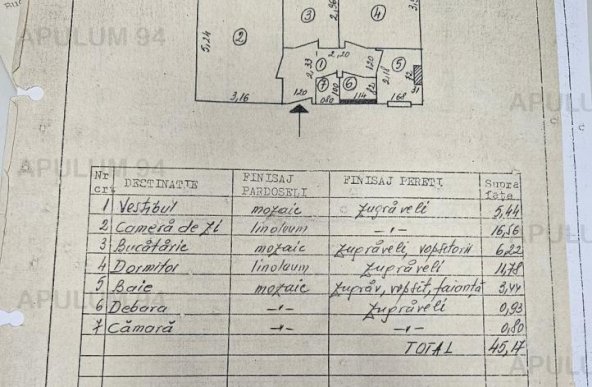 APULUM 94
2,96
3
4
2
5,24
2,20
1
2,33
120
5
2,18
7
6
100
82
92
31
3,16
120
080
114
168
APULUM 94
Nr crt DESTINAȚIE FINISAJ PARDOSELI FINISAJ PEREȚI Supra fața
1 Vestibul mozaic zugrăveli 5,44
2 Cameră de zi linoleum -"- 16,56
3 Bucătărie mozaic zugrăveli, vopsitorii 6,22
4 Dormitor linoleum zugrăveli 14,78
5 Baie mozaic zugrăv, vopsit, faianță 3,44
6 Debara -"- zugrăveli 0,93
7 Cămară -"- -"- 0,80
TOTAL 45,17
APULUM 94
APULUM 94